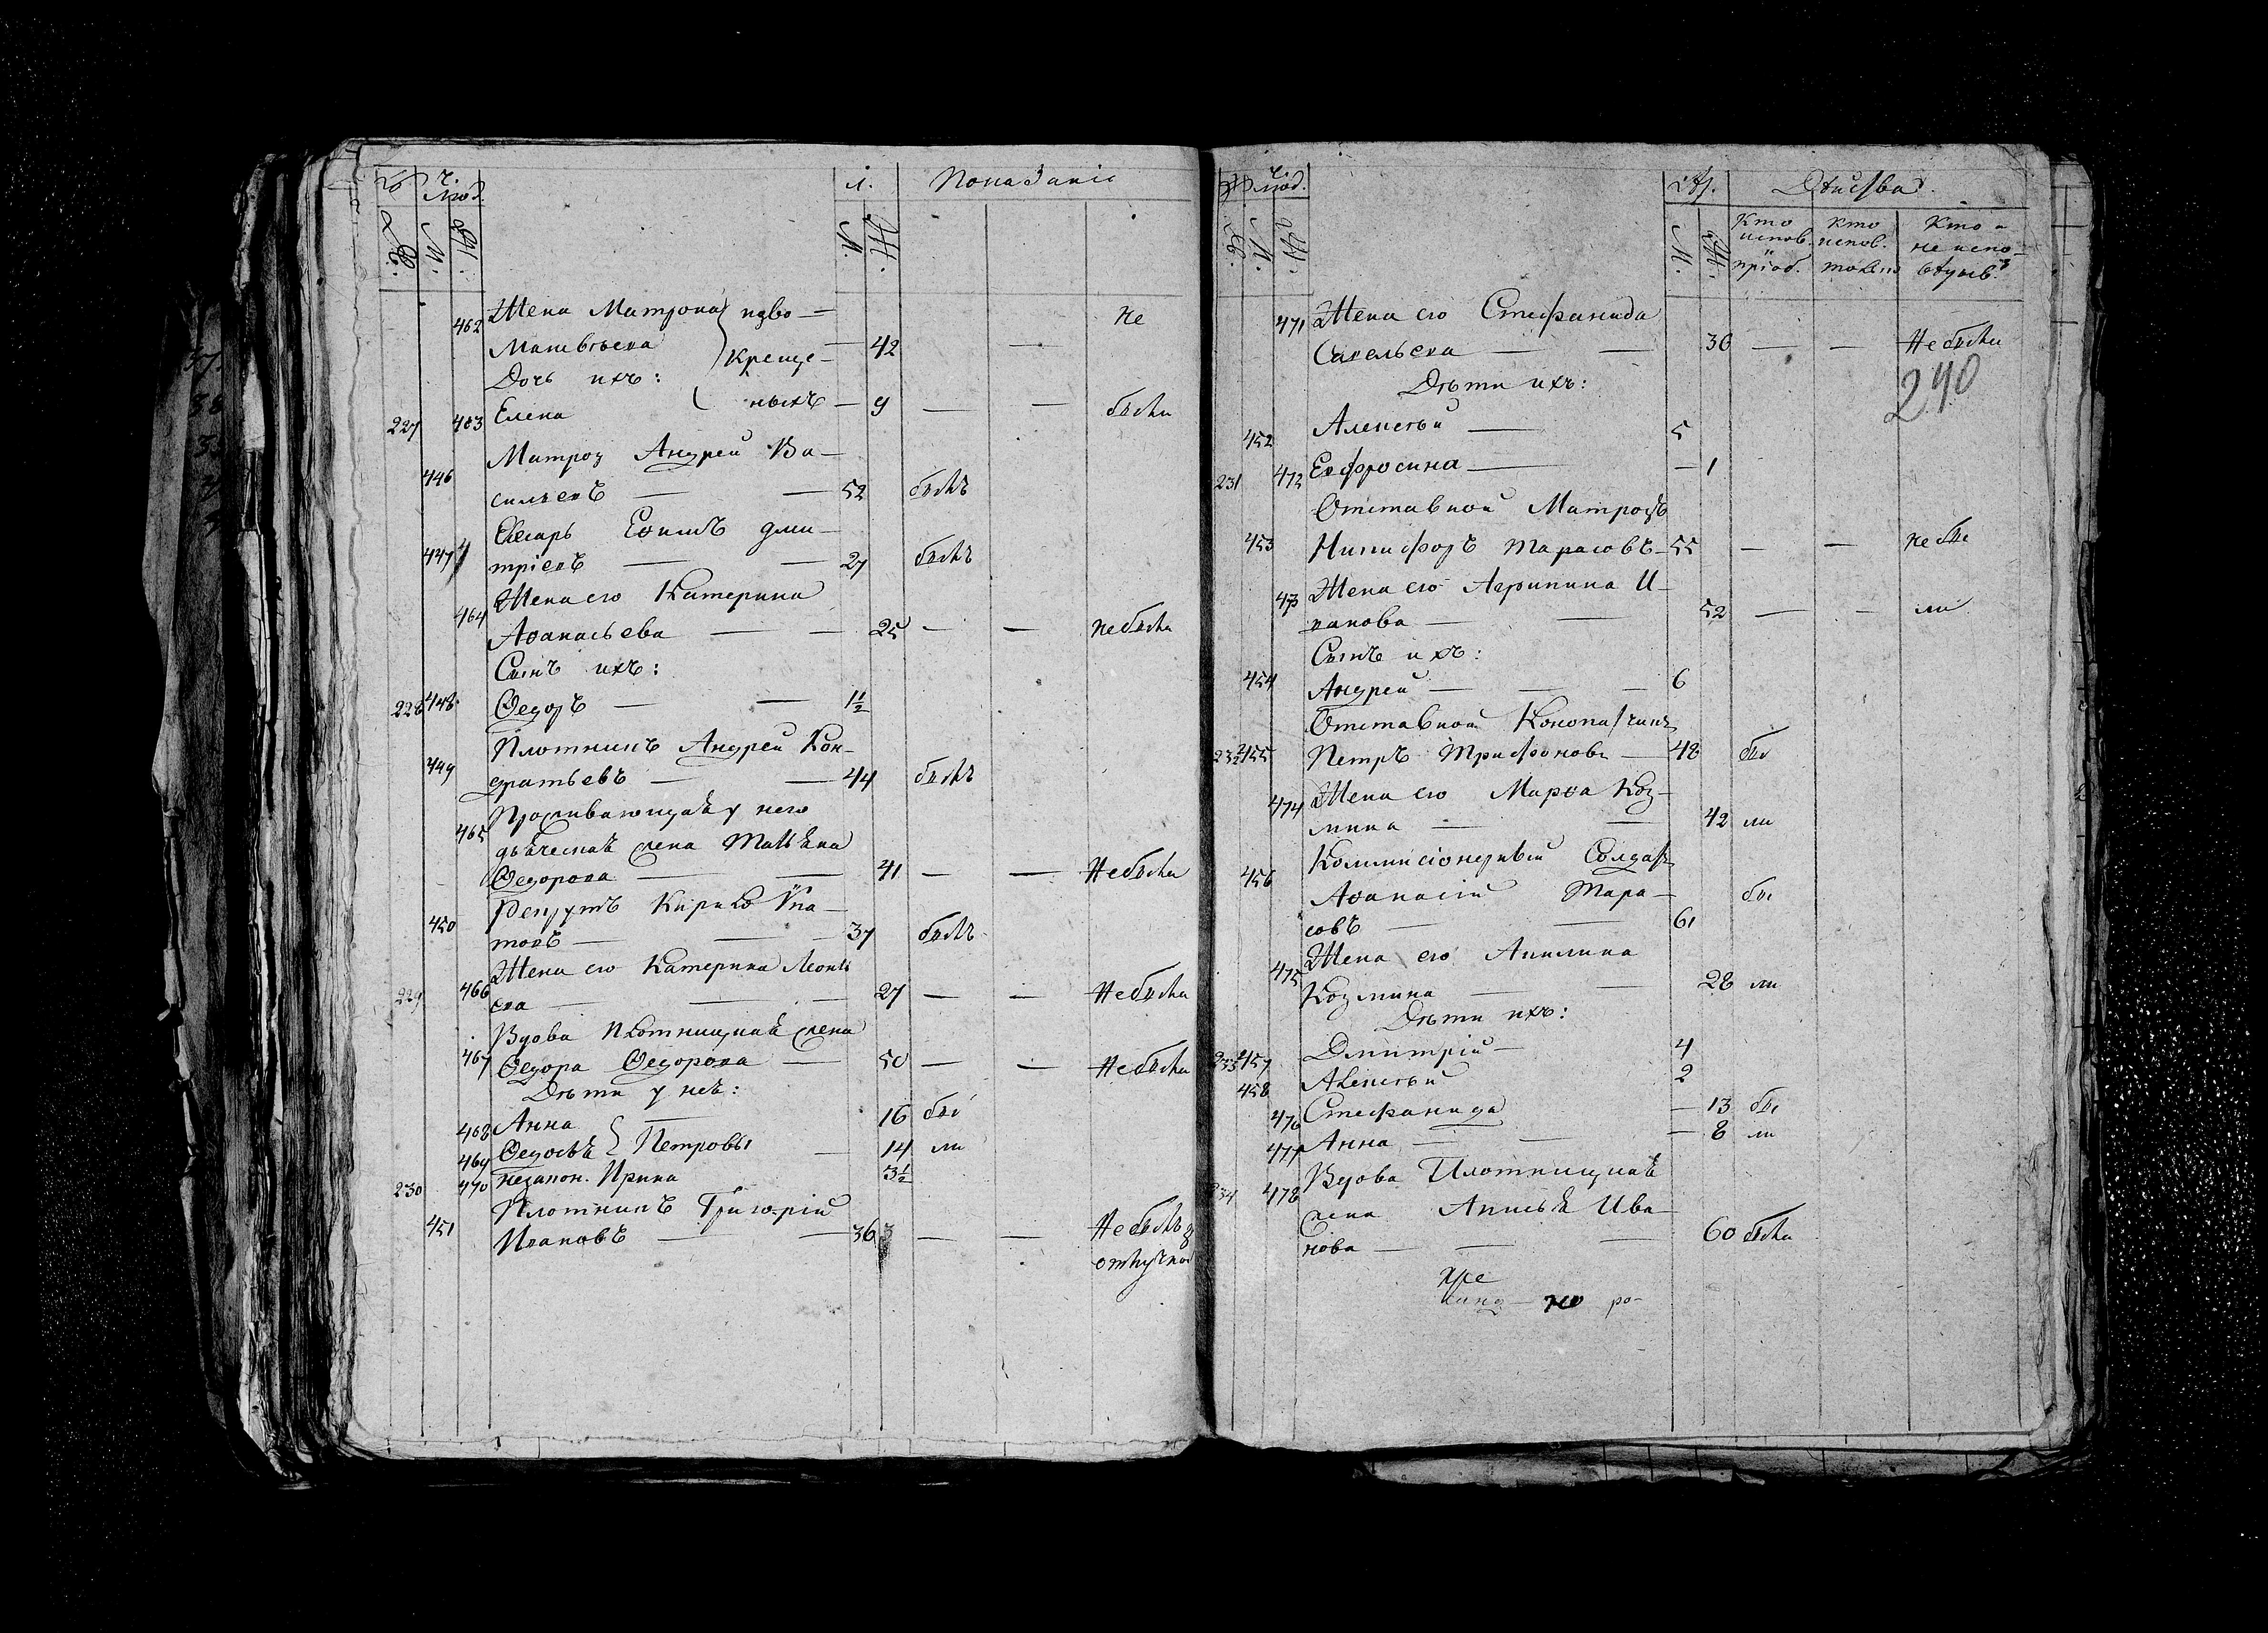 Ч. люд.
Л.
Показаніе
М.
Ж.
М.
Ж.
462 Жена Матрона из дво—
Матвѣева 42 не
Дочь ихъ: креще—
463 Елена ныхъ — 9 — — были
227
Матроз Андрей Ва—
446 сильевъ — — 52 былъ
Слесарь Ефимъ Дми—
447 тріевъ — — 27 былъ
464 Жена его Катерина
Аѳанасьева — — 25 — — не была
Сынъ ихъ:
228 448 Ѳедоръ — — 1½
Плотникъ Андрей Кон—
449 дратьевъ — — 44 былъ
465 Проживающая у него
жена Татьяна
Ѳедорова — — 41 — — Не была
Рекрутъ Кирило Ипа—
450 товъ — — 37 былъ
229 466 Жена его Катерина Леонть
ева — — — 27 — — Не была
Вдова плотницкая жена
467 Ѳедора Ѳедорова — 50 — — Не была
Дѣти у нея:
468 Анна — 16 бы
469 Ѳедосья Петровы — 14 ли
230 470 незакон. Ирина 3½
Плотникъ Григорій
451 Ивановъ — — 36 — — Не былъ з
отлучкой
Ч. люд.
Лѣт.
Дѣйства.
М.
Ж.
М.
Ж.
Кто испов. и пріоб.
Кто испов. токмо
Кто и не испо—вѣдыв.
471 Жена его Стефанида
Савельева — — 30 — — Не была
240
Дѣти ихъ:
452 Алексѣй — 5
231 472 Евфросина — — 1
Отставной Матрозъ
453 Никифоръ Тарасовъ — 55 — — не бы
473 Жена его Агрипина И—
ванова — — 52 — — ли
Сынъ ихъ:
454 Андрей — — — 6
Отставной Конопатчикъ
232 455 Петръ Трифоновъ — 48 бы
474 Жена его Марѳа Коз—
мина — — 42 ли
Коммисіонерный Солдатъ
456 Аѳанасій Тара— бы
совъ — — 61
475 Жена его Акилина
Козмина — — 28 ли
Дѣти ихъ:
233 457 Дмитрій — 4
458 Алексѣй 2
476 Стефанида — 13 бы
477 Анна — — — 8 ли
234 478 Вдова Плотницкая
жена Анисья Ива—
нова — — — 60 была